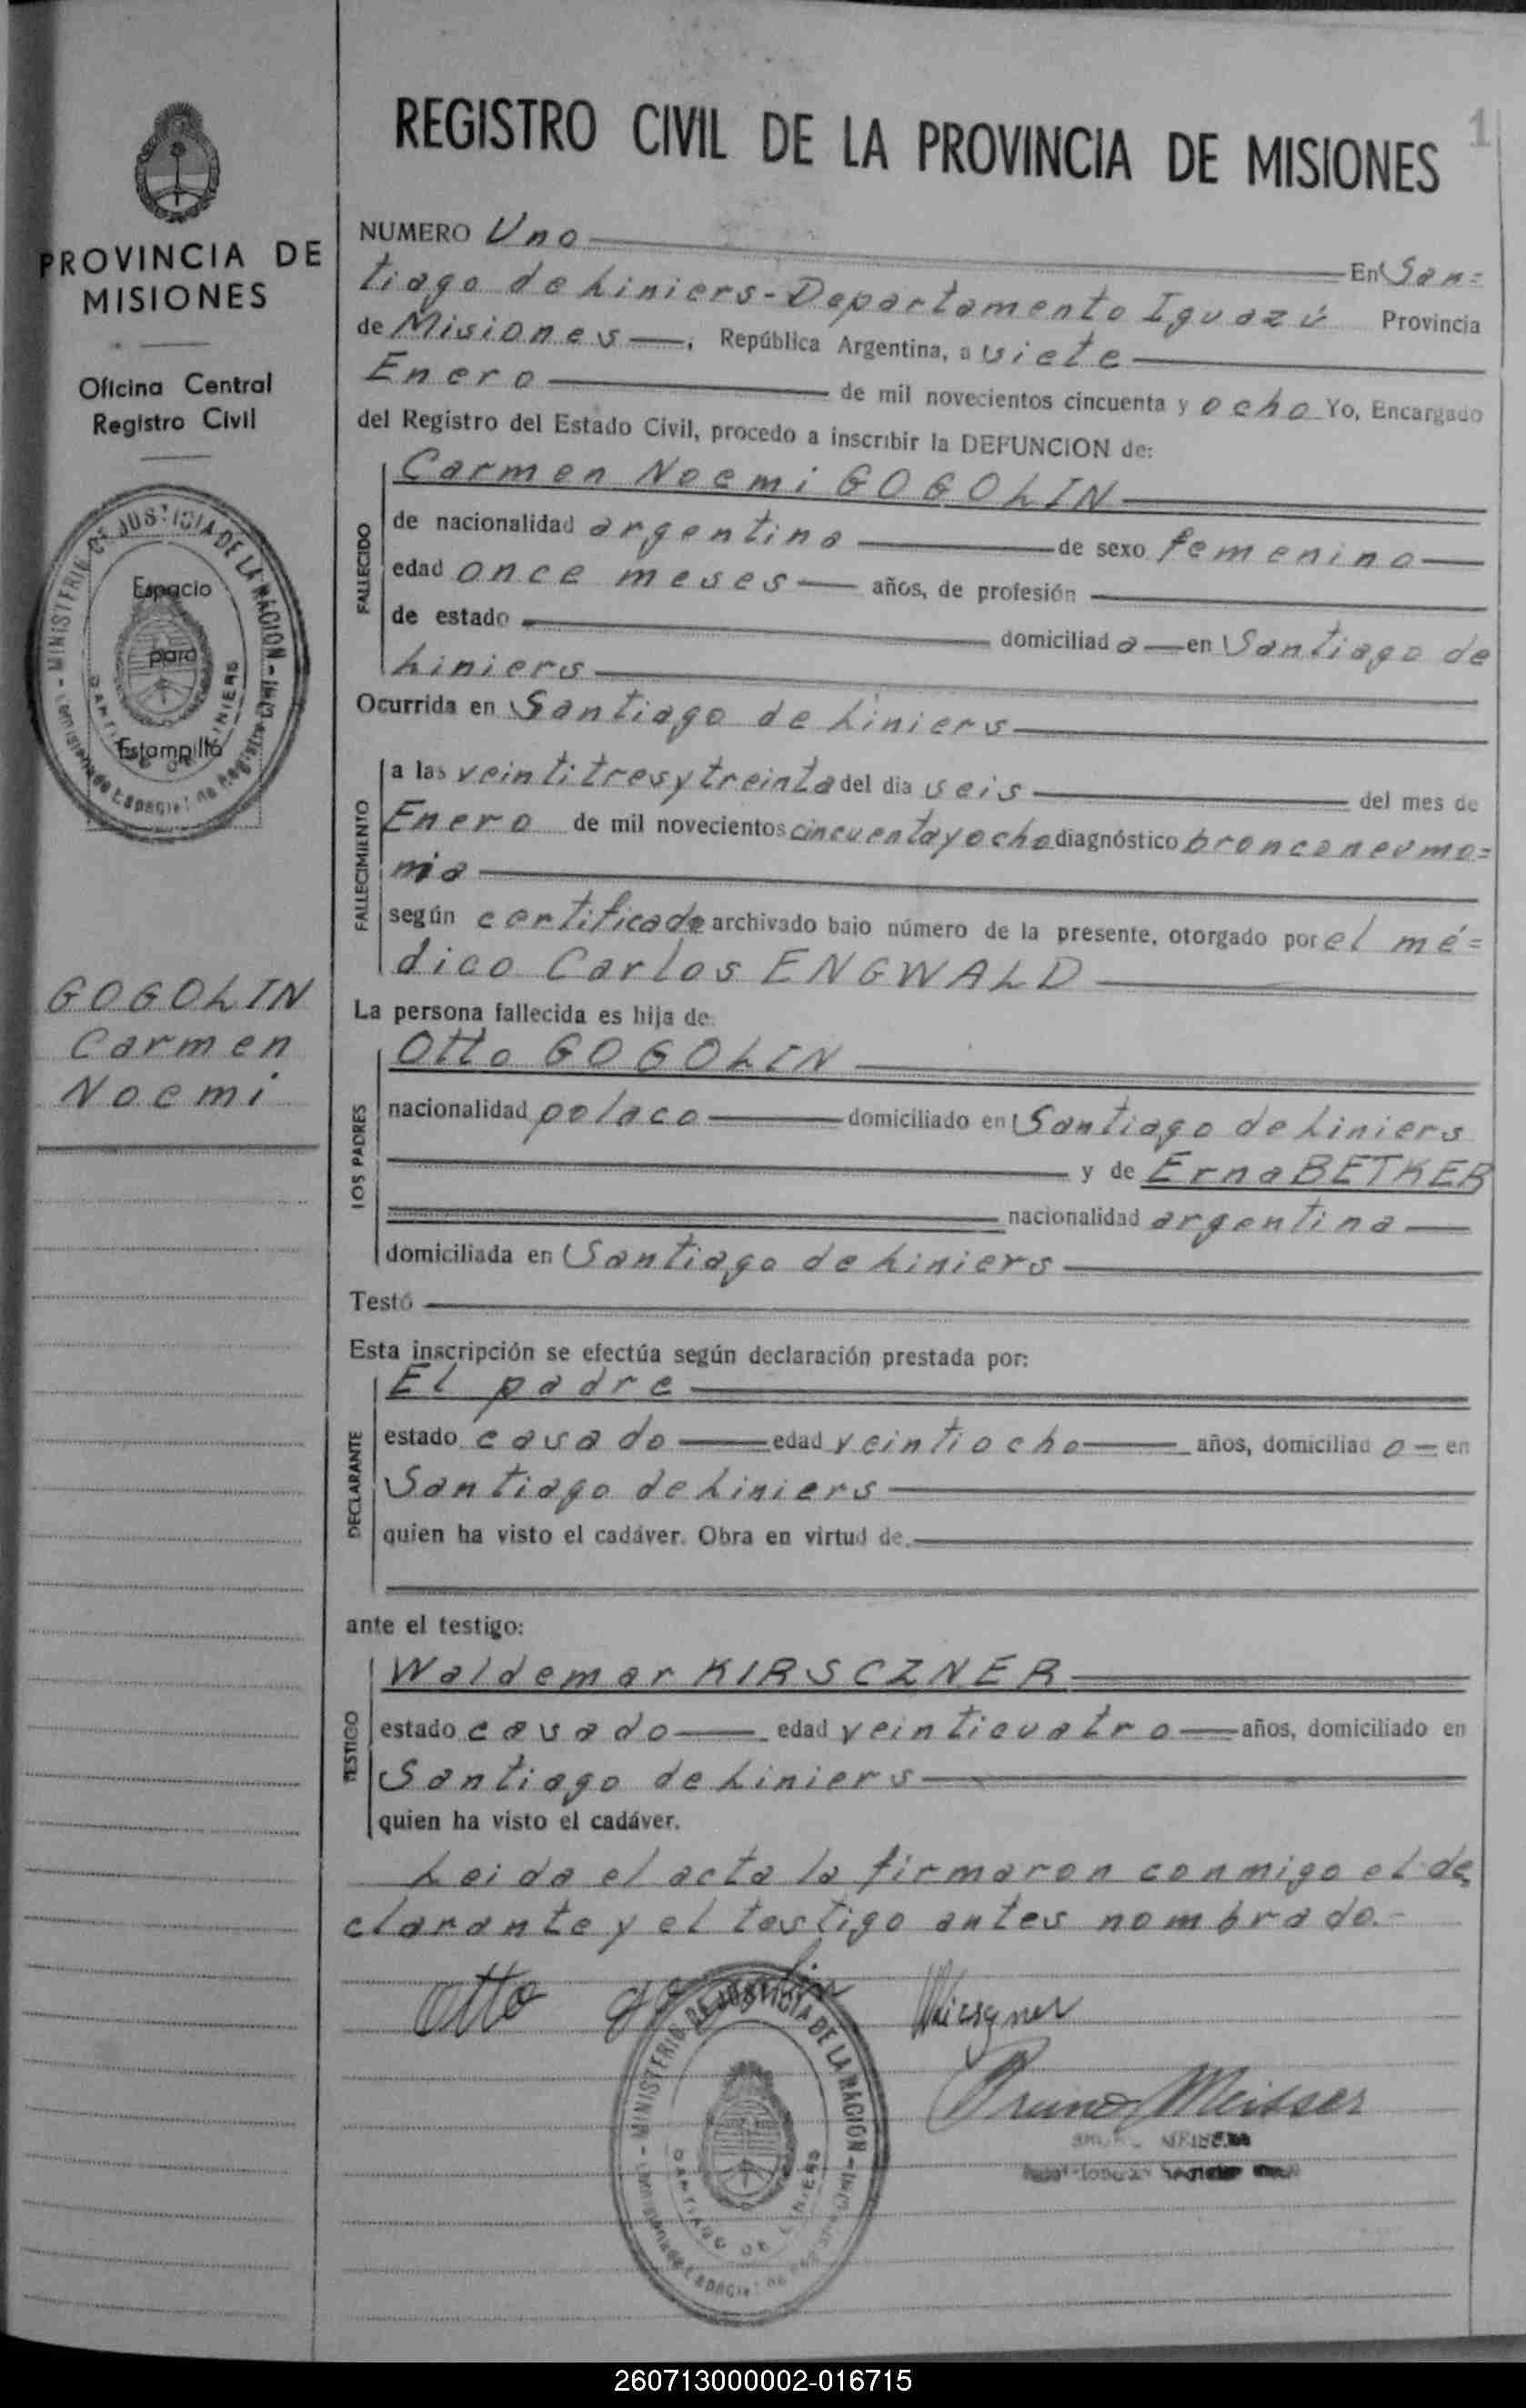 REGISTRO CIVIL DE LA PROVINCIA DE MISIONES
1
PROVINCIA DE
MISIONES
Oficina Central
Registro Civil
MINISTERIO DE JUSTICIA DE LA NACION
Espacio
para
Estampilla
SANTIAGO DE LINIERS
GOGOLIN
Carmen
Noemi
NUMERO Uno En San=
tiago de Liniers - Departamento Iguazú Provincia
de Misiones, República Argentina, a siete
Enero de mil novecientos cincuenta y ocho Yo, Encargado
del Registro del Estado Civil, procedo a inscribir la DEFUNCION de:
FALLECIDO
Carmen Noemi GOGOLIN
de nacionalidad argentina de sexo femenino
edad once meses años, de profesión
de estado domiciliad a en Santiago de
Liniers
Ocurrida en Santiago de Liniers
FALLECIMIENTO
a las veintitres y treinta del dia seis del mes de
Enero de mil novecientos cincuenta y ocho diagnóstico bronconeumo=
nia
según certificado archivado bajo número de la presente, otorgado por el mé=
dico Carlos ENGWALD
La persona fallecida es hija de:
LOS PADRES
Otto GOGOLIN
nacionalidad polaco domiciliado en Santiago de Liniers
y de Erna BETKER
nacionalidad argentina
domiciliada en Santiago de Liniers
Testó
Esta inscripción se efectúa según declaración prestada por:
DECLARANTE
El padre
estado casado edad veintiocho años, domiciliad o en
Santiago de Liniers
quien ha visto el cadáver. Obra en virtud de
ante el testigo:
TESTIGO
Waldemar KIRSCZNER
estado casado edad veinticuatro años, domiciliado en
Santiago de Liniers
quien ha visto el cadáver.
Leida el acta la firmaron conmigo el de
clarante y el testigo antes nombrado.-
Otto Gogolin
Bruno Meisser
MINISTERIO DE JUSTICIA DE LA NACION
SANTIAGO DE LINIERS
260713000002-016715